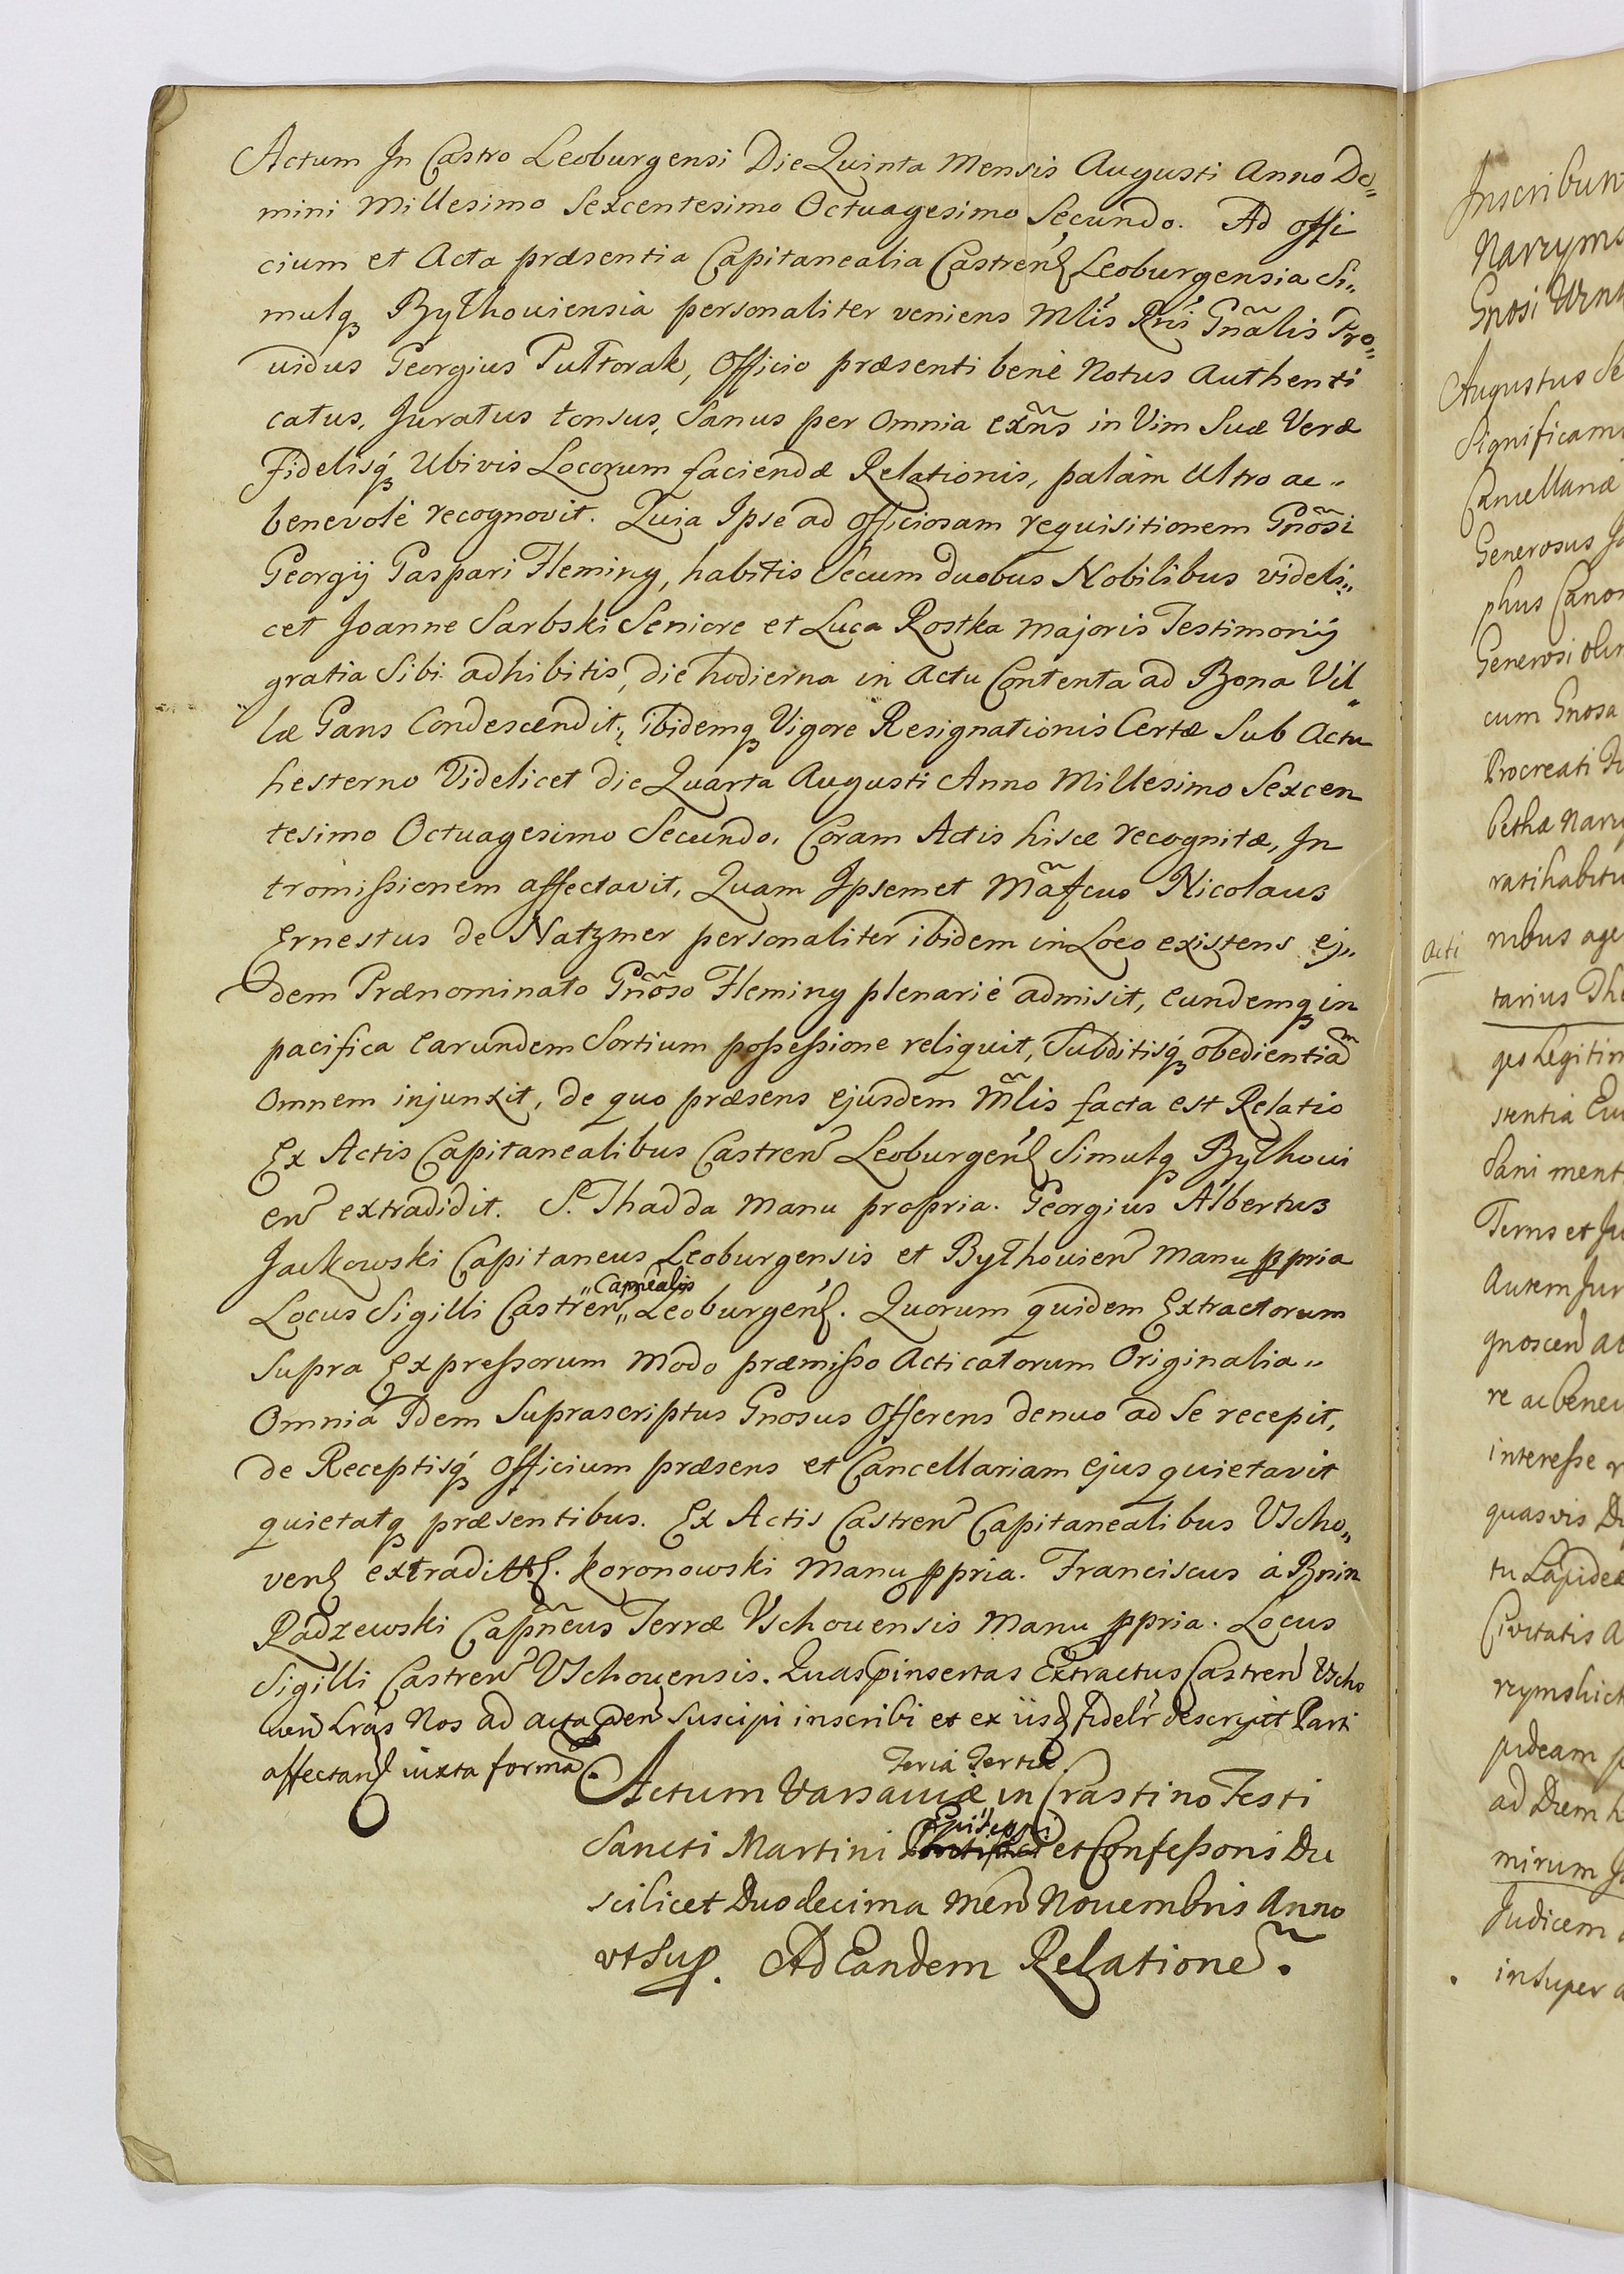 Actum In Castro Leoburgensi Die Quinta Mensis Augusti Anno Do„
mini Millesimo Sexcentesimo Octuagesimo Secundo. Ad offi
cium et Acta præsentia Capitanealia Castren Leoburgensia Si„
mulq Bythouiensia personaliter veniens Mlis Rni Gnãlis Pro„
uidus Georgius Puttorak, Officio præsenti benè Notus Authenti
catus, Juratus tonsus, Sanus per Omnia exñs in Vim Suæ Veræ
Fidelisq Ubivis Locorum faciendæ Relationis, palàm Ultro ac„
benevolè recognovit. Quia Ipse ad Officiosam requisitionem Gnõsi
Georgij Gaspari Fleming, habitis Secum duobus Nobilibus videli„
cet Joanne Sarbski Seniore et Luca Rostka majoris Testimonij
gratia Sibi adhibitis, die hodierna in Actu Contenta ad Bona Vil„
læ Gans Condescendit, ibidemq Vigore Resignationis Certæ Sub Actu
hesterno Videlicet die Quarta Augusti Anno Millesimo Sexcen
tesimo Octuagesimo Secundo, Coram Actis hisce recognitæ, In
tromißionem affectavit, Quam Ipsemet Mãfcus Nicolaus
Ernestus de Natzmer personaliter ibidem in Loco existens ej„
dem Prænominato Gnõso Fleming plenariè admisit, eundemq in
pacifica earundem Sortium poßeßione reliquit, Subditisq obedientiam
Omnem injunxit, de quo præsens ejusdem Mlis facta est Relatio
Ex Actis Capitanealibus Castren Leoburgen Simulq Bythoui
en extradidit. S. Thadda manu propria. Georgius Albertus
Jackowski Capitaneus Leoburgensis et Bythouien Manu ppria
„Capnealis
Locus Sigilli Castren„ Leoburgen. Quorum quidem Extractorum
Supra Expreßorum modo præmißo Acticatorum Originalia„
Omnia Idem Suprascriptus Gnosus Offerens denuo ad Se recepit,
de Receptisq Officium præsens et Cancellariam ejus quietavit
quietatq præsentibus. Ex Actis Castren Capitanealibus Vscho„
ven extradit. Koronowski Manu ppria. Franciscus à Bnin
Radzewski Capñeus Terræ Vschouensis Manu ppria. Locus
Sigilli Castren Vschouensis. Quas pinsertas Extractus Castren Vscho
uen Lras Nos ad acta pden suscipi inscribi et ex iisd fidelr descripst Parti
affectan iuxta forma.
Feria Tertia
Actum Varsauiæ in Crastino Festi
Episcopi
Sancti Martini et Confeßoris Die
scilicet Duodecima Men Nouembris Anno
vt Sup. Ad Eandem Relatione.
Inscribun
Narzyms
Gnosi
Augustus Se
Significamu
Cancellariæ
Generosus Jo
phus Canon
Generosi olim
cum Gnosa
Procreati
bethæ Narzy
ratihabitu
acti
nibus age
tarius
ges Legitim
sentia
Sani ment
Terris et Ju
Autem Jur
gnoscen ac
re ac benev
interesse
quasvis
tu Lapidea
Civitatis
rzymskich
pideam
ad Diem h
mirum
Judicem
insuper